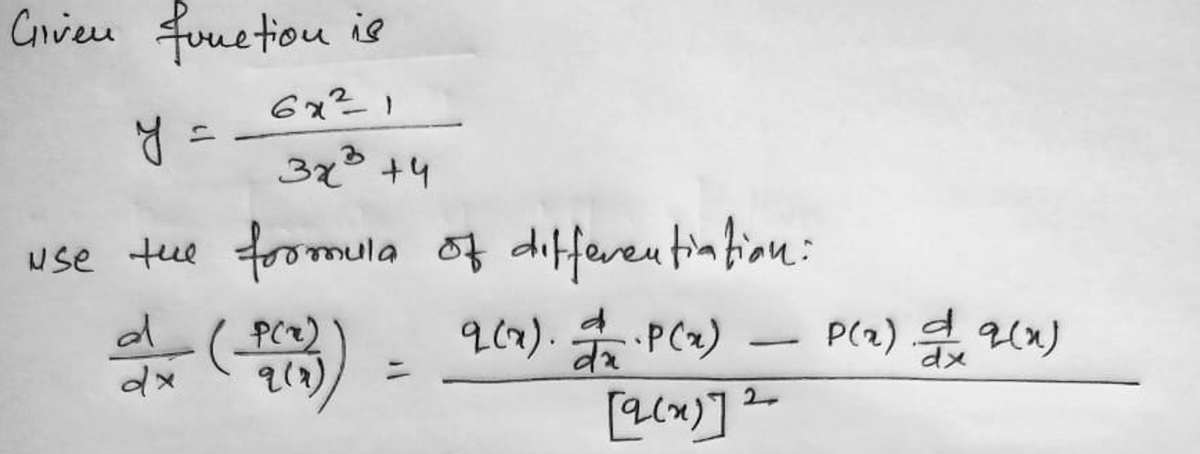 Given function is
y = 6x² - 1 / 3x³ + 4
use the formula of differentiation:
d/dx (P(x)/q(x)) = q(x) · d/dx · P(x) — P(x) · d/dx q(x) / [q(x)]²